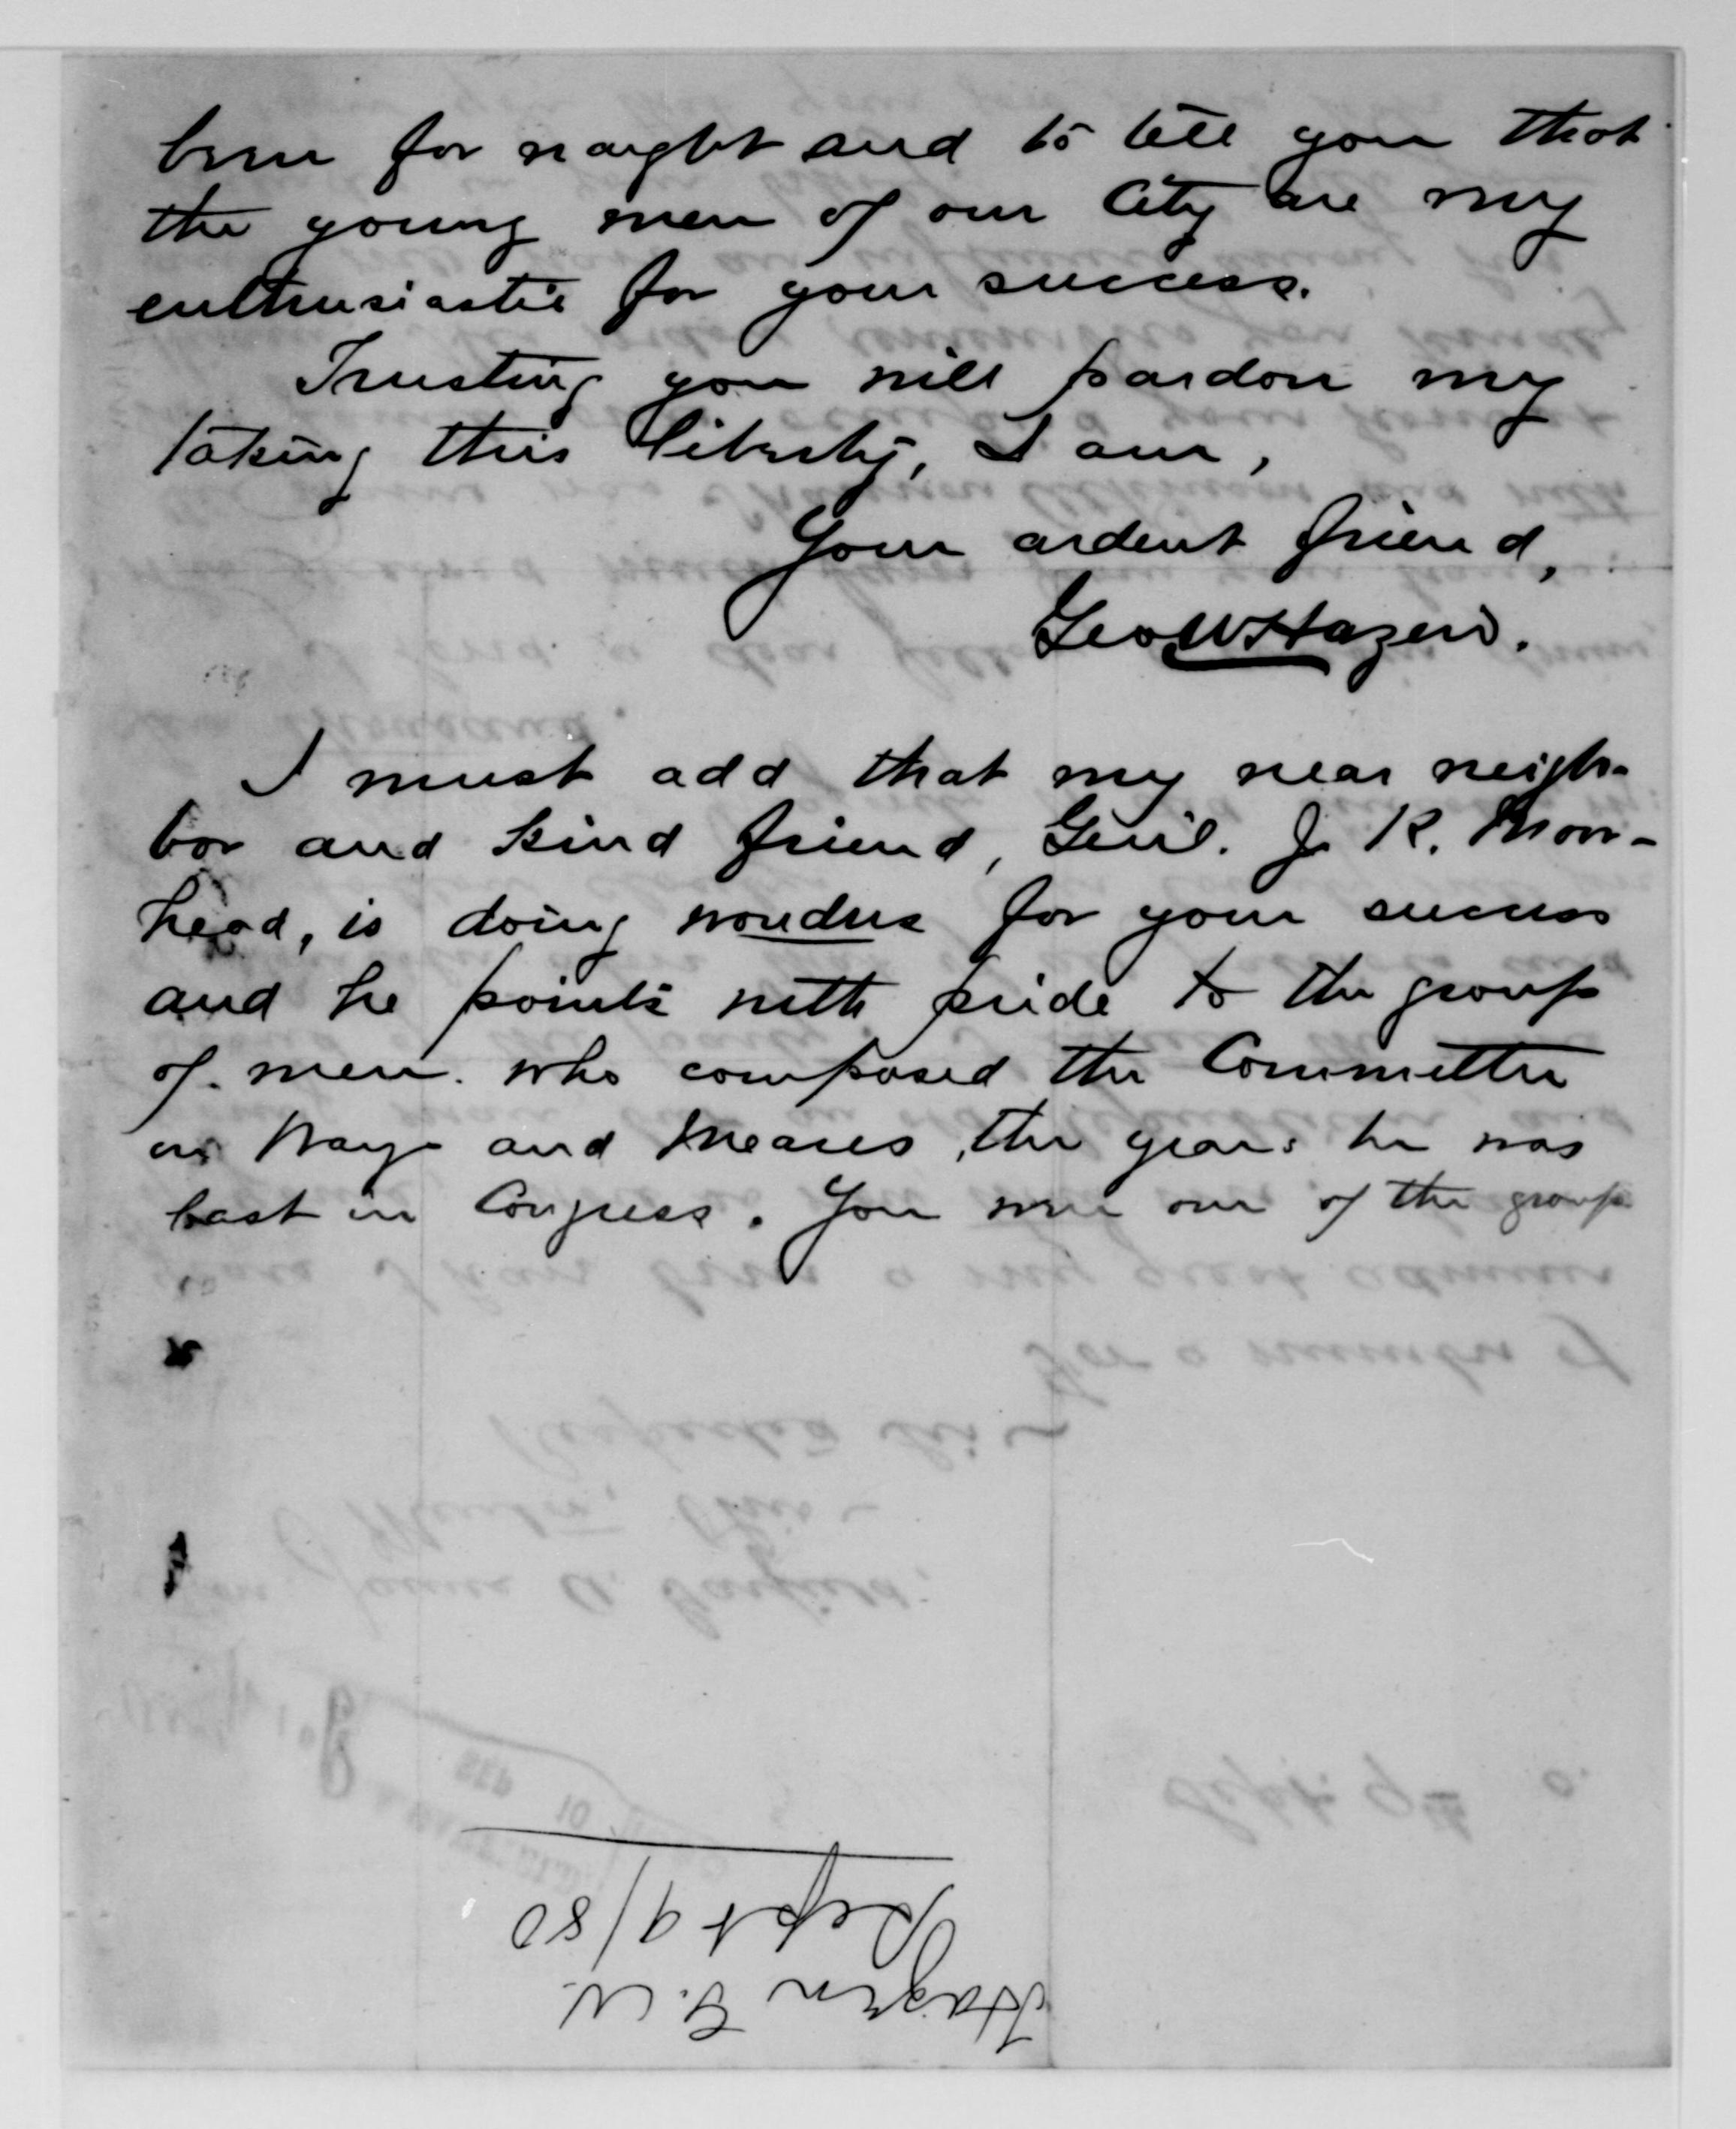 been for naught and to tell you that
the young men of our City are very
enthusiastic for your success.
Trusting you will pardon my
taking this liberty, I am,
Your ardent friend,
Geo W Hazen.
I must add that my near neigh-
bor and kind friend, Genl. J. K. Moor-
head, is doing wonders for your success
and he points with pride to the group
of men who composed the Committee
on Ways and Means, the years he was
last in Congress. You were one of the group
Hazen G. W.
Sept 9/80